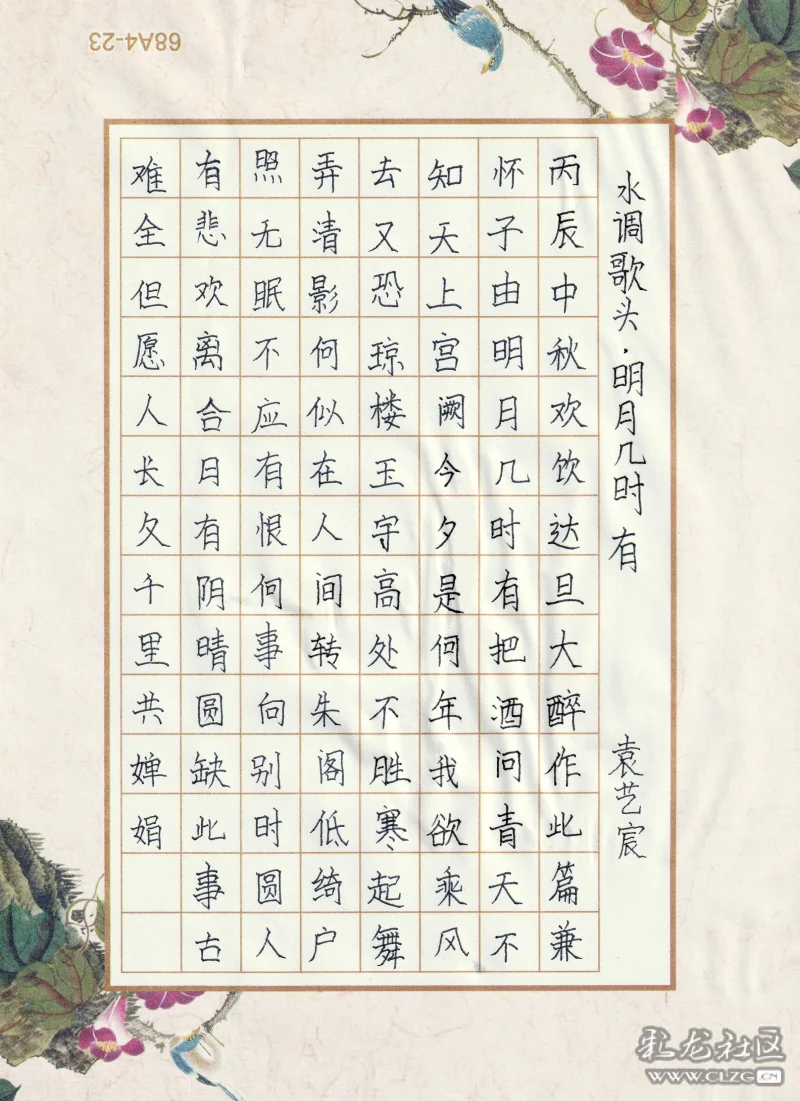 68A4-23
水调歌头·明月几时有
袁艺宸
丙辰中秋欢饮达旦大醉作此篇兼
怀子由明月几时有把酒问青天不
知天上宫阙今夕是何年我欲乘风
去又恐琼楼玉宇高处不胜寒起舞
弄清影何似在人间转朱阁低绮户
照无眠不应有恨何事向别时圆人
有悲欢离合日有阴晴圆缺此事古
难全但愿人长久千里共婵娟
彩龙社区
WWW.CLZG.CN